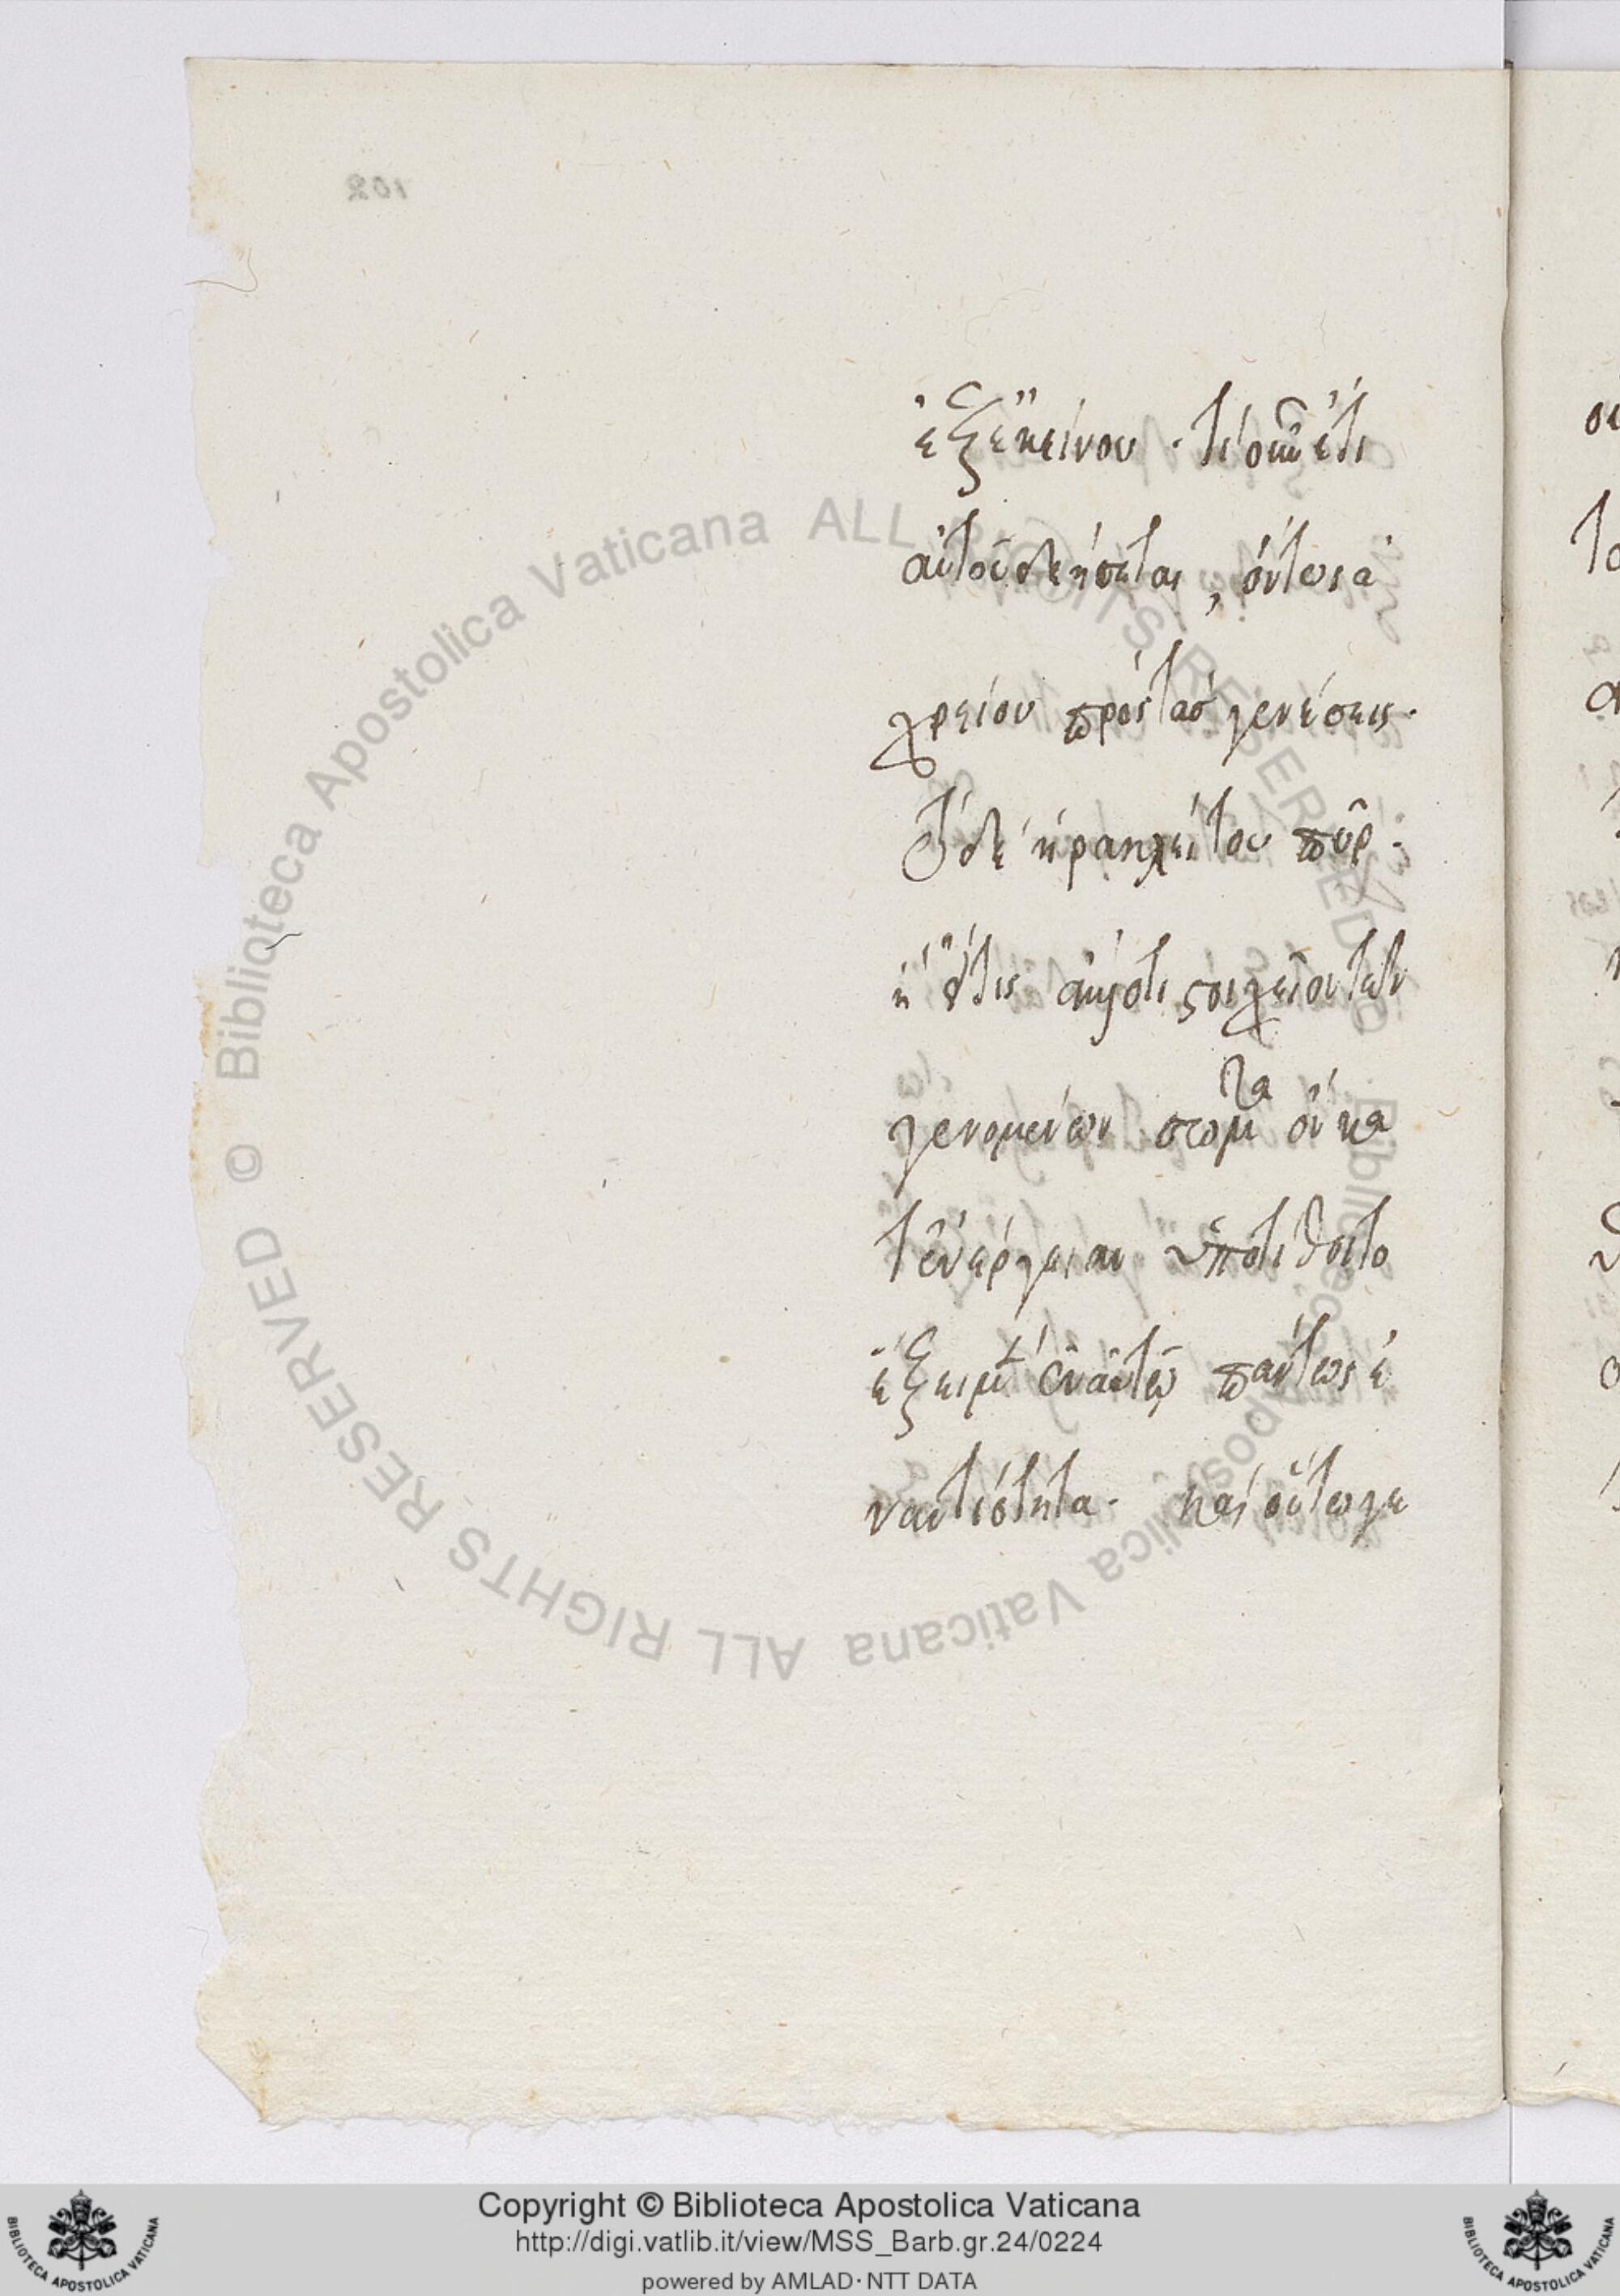 102
ἐξ ἐκείνου · τί οὖν ἔτι
αὐτοῦ δεήσεται, ὄντως ἀ
χρείου πρὸς τὰς γενέσεις·
τὸ δὲ ἡρακλείτου πῦρ·
στοιχεῖον τῶν
γενομένων στόμα
τα
τ ἐνέργειαν ὑποτίθοιτο
ἕξει μ ἐν αὐτῷ πάντως ἐ
ναντιότητα· καὶ οὕτω γε
© Biblioteca Apostolica Vaticana ALL RIGHTS RESERVED © Biblioteca Apostolica Vaticana ALL RIGHTS RESERVED
Copyright © Biblioteca Apostolica Vaticana
http://digi.vatlib.it/view/MSS_Barb.gr.24/0224
powered by AMLAD·NTT DATA
BIBLIOTECA APOSTOLICA VATICANA
BIBLIOTECA APOSTOLICA VATICANA